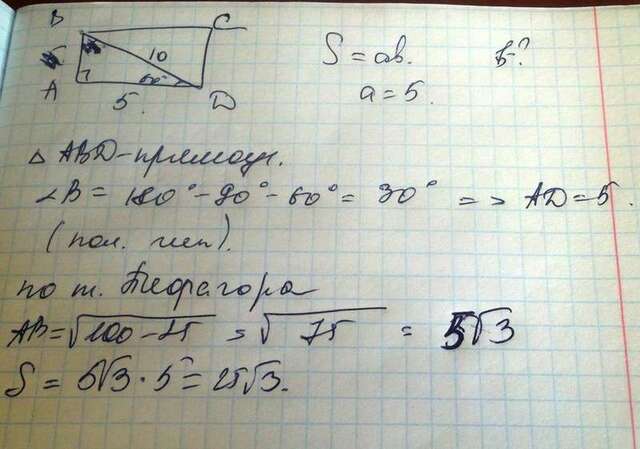 B C
10
60°
A 5. D
S = ab. b-?
a = 5.
△ ABD - прямоуг.
∠B = 180° - 90° - 60° = 30° => AD = 5.
(пол. гип).
по т. Пифагора
AB = √100 - 25 = √75 = 5√3
S = 5√3 · 5 = 25√3.